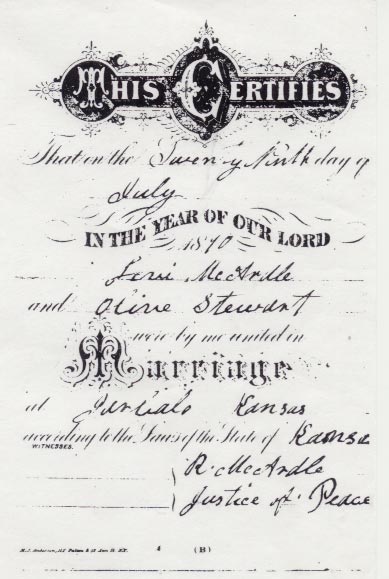 THIS CERTIFIES
That on the Twenty Ninth day of
July
IN THE YEAR OF OUR LORD
1870
McArdle
and Olive Stewart
were by me united in
Marriage
at Kansas
according to the Laws of the State of Kansas
WITNESSES.
R. McArdle
Justice of Peace
4 (B)